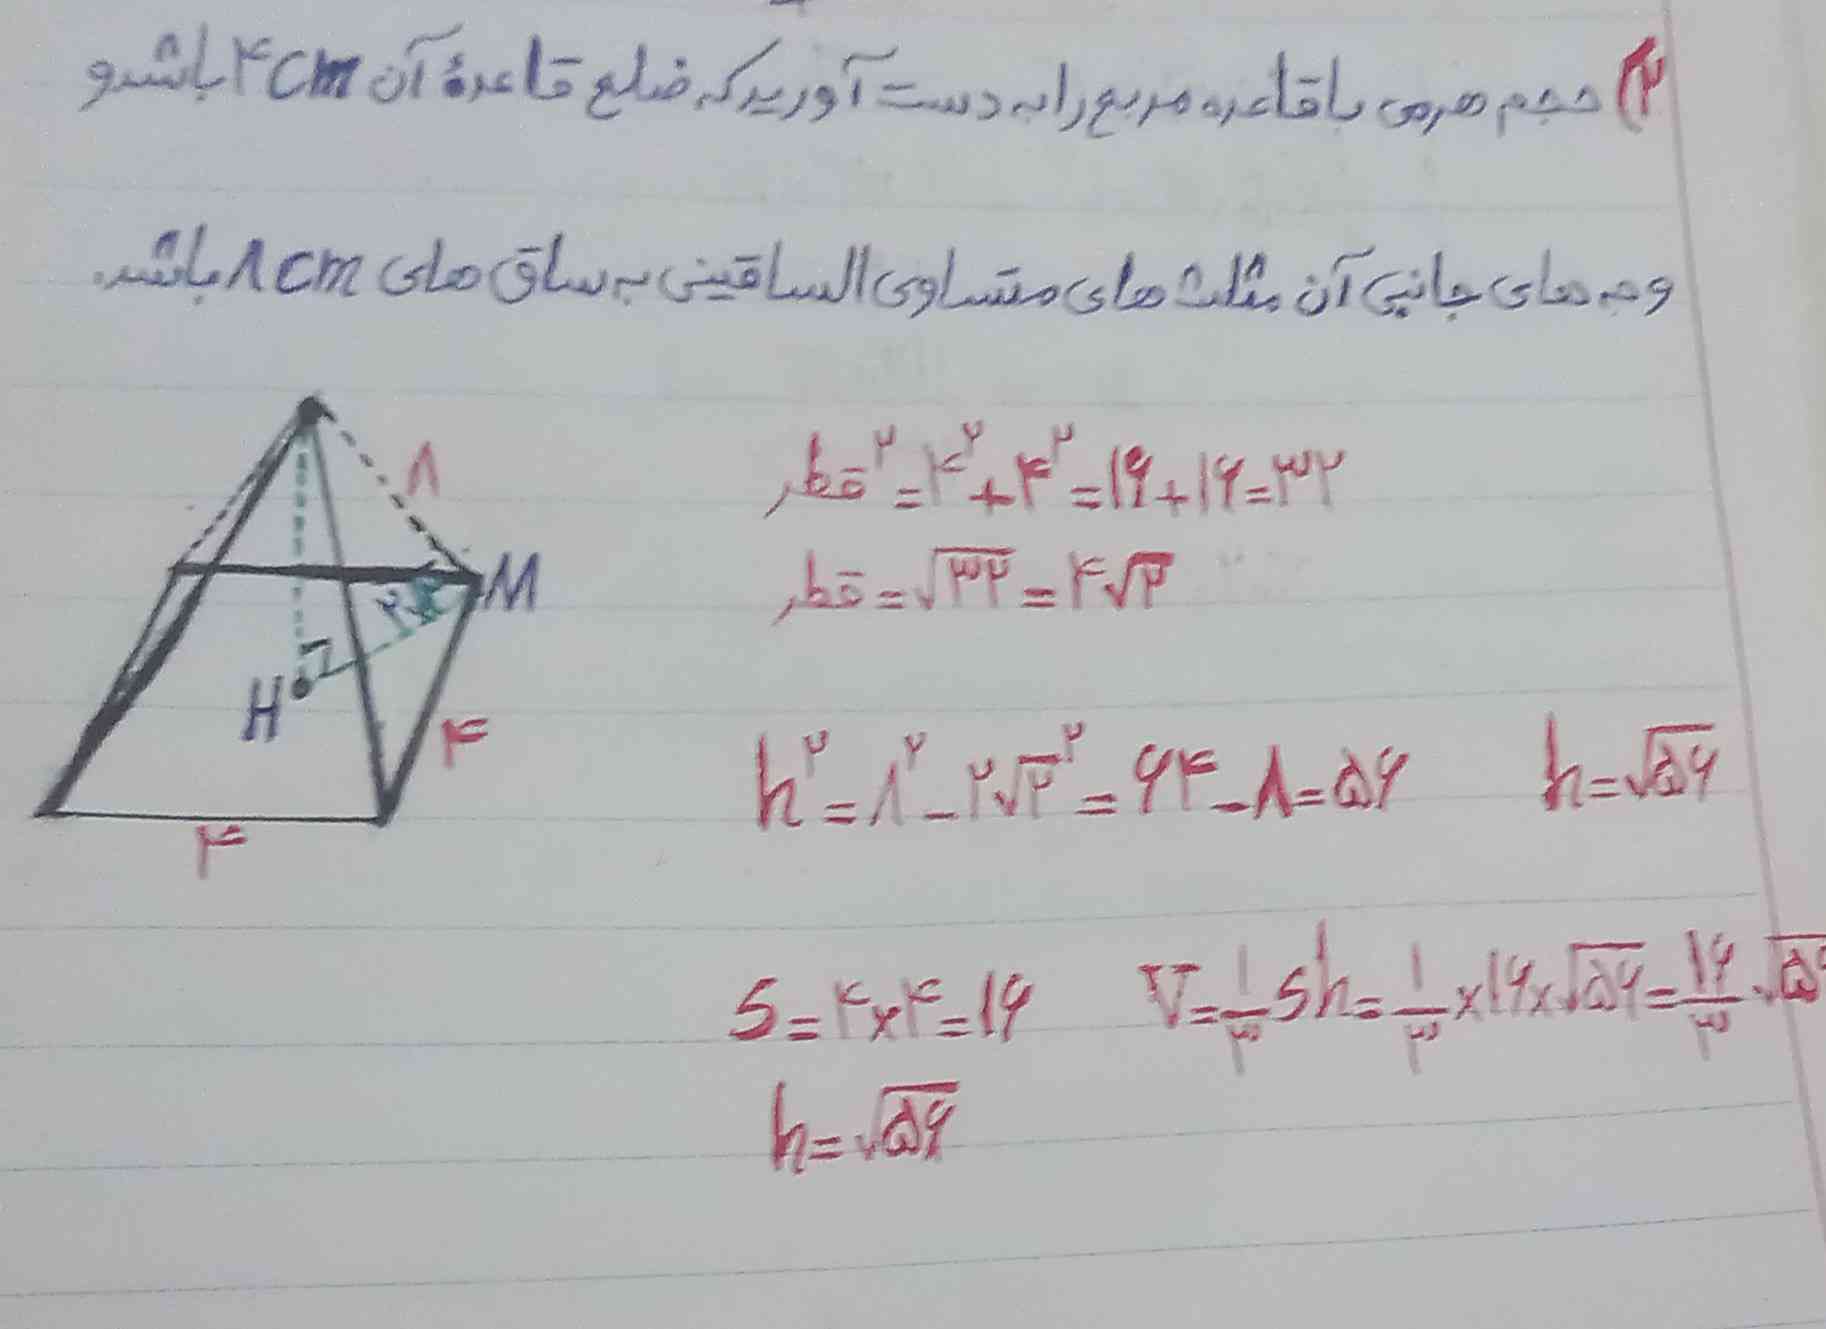 ۲) حجم هرمی با قاعده مربع را به دست آورید که ضلع قاعدهٔ آن ۴cm باشد و
وجه های جانبی آن مثلث های متساوی الساقینی به ساق های ۸cm باشد.
قطر² = ۴² + ۴² = ۱۶ + ۱۶ = ۳۲
۸
قطر = √۳۲ = ۴√۲
M
۲√۲
H
۴
h² = ۸² - ۲√۲² = ۶۴ - ۸ = ۵۶ h = √۵۶
۴
S = ۴×۴ = ۱۶ V = ۱/۳ Sh = ۱/۳ × ۱۶ × √۵۶ = ۱۶/۳ √۵۶
h = √۵۶